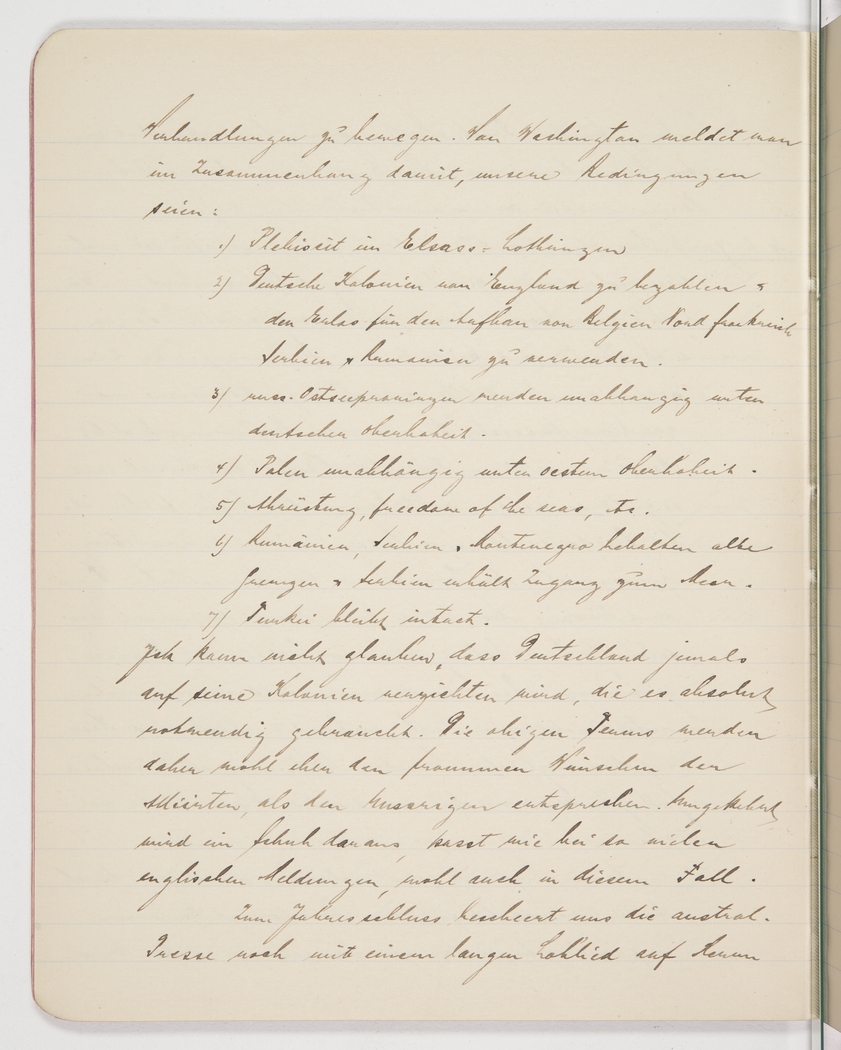 Verhandlungen zu bewegen. Von Washington meldet man
im Zusammenhang damit, unsere Bedingungen
seien:
1) Plebiscit in Elsass-Lothringen
2) Deutsche Kolonien von England zu bezahlen &
den Erlös für den Aufbau von Belgien Nordfrankreich
Serbien & Rumanien zu verwenden.
3) russ. Ostseeprovinzen werden unabhängig unter
deutscher Oberhoheit.
4) Polen unabhängig unter oesterr Oberhoheit.
5) Abrüstung, freedom of the seas, etc.
6) Rumänien, Serbien & Montenegro behalten alte
Grenzen & Serbien erhält Zugang zum Meer.
7) Türkei bleibt intact.
Ich kann nicht glauben, dass Deutschland jemals
auf seine Kolonien verzichten wird, die es absolut
notwendig gebraucht. Die obigen Terms werden
daher wohl eher den frommen Wünschen der
Alliirten, als den Unsrigen entsprechen. Umgekehrt
wird ein Schuh daraus, passt wie bei so vielen
englischen Meldungen, wohl auch in diesem Fall.
Zum Jahresschluss bescheert uns die austral.
Presse noch mit einem langen Loblied auf Herrn